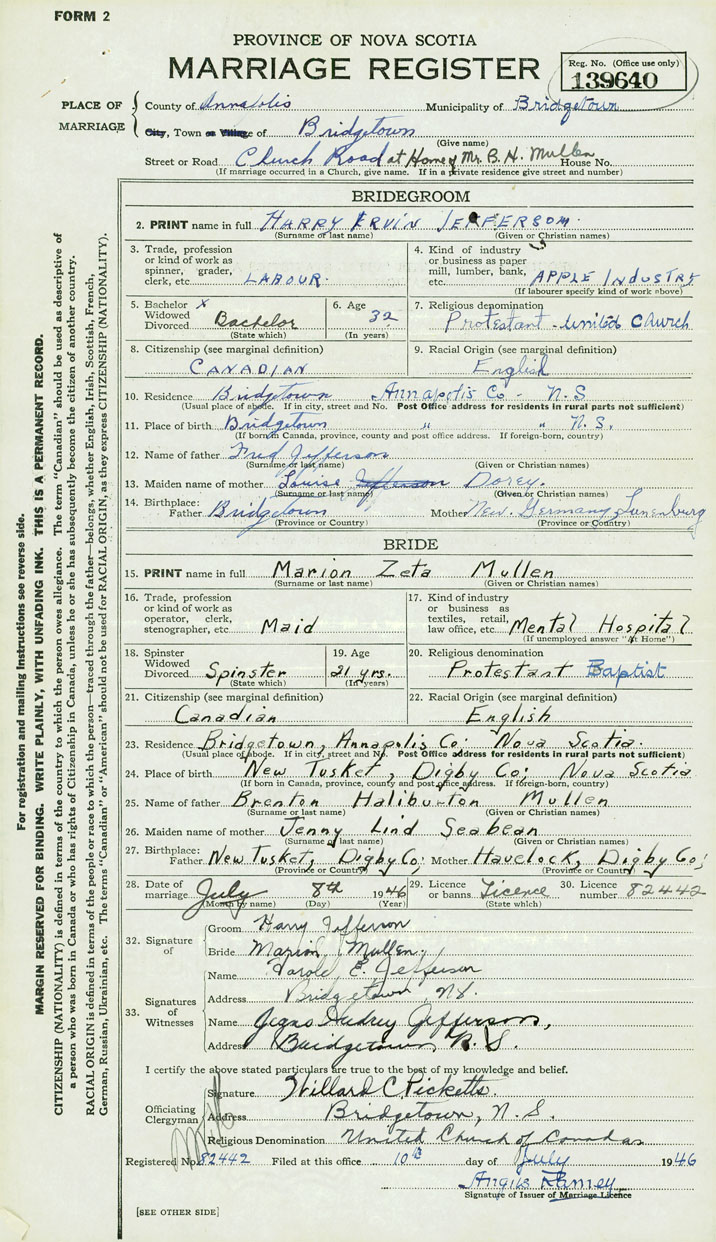 FORM 2
PROVINCE OF NOVA SCOTIA
MARRIAGE REGISTER
Reg. No. (Office use only)
139640
PLACE OF MARRIAGE
County of Annapolis Municipality of Bridgetown
City, Town or Village of Bridgetown
(Give name)
Street or Road Church Road at Home of Mr. B. H. Mullen House No.
(If marriage occurred in a Church, give name. If in a private residence give street and number)
BRIDEGROOM
2. PRINT name in full HARRY ERVIN JEFFERSON.
(Surname or last name) (Given or Christian names)
3. Trade, profession or kind of work as spinner, grader, clerk, etc. LABOUR.
4. Kind of industry or business as paper mill, lumber, bank, etc. APPLE INDUSTRY
(If labourer specify kind of work above)
5. Bachelor X Widowed Divorced Bachelor
(State which)
6. Age 32
(In years)
7. Religious denomination
Protestant - United Church
8. Citizenship (see marginal definition)
CANADIAN
9. Racial Origin (see marginal definition)
English
10. Residence Bridgetown Annapolis Co - N.S
(Usual place of abode. If in city, street and No. Post Office address for residents in rural parts not sufficient)
11. Place of birth Bridgetown " " N.S.
(If born in Canada, province, county and post office address. If foreign-born, country)
12. Name of father Fred Jefferson
(Surname or last name) (Given or Christian names)
13. Maiden name of mother Louise Jefferson Dorey.
(Surname or last name) (Given or Christian names)
14. Birthplace: Father Bridgetown Mother New Germany Lunenburg
(Province or Country) (Province or Country)
BRIDE
15. PRINT name in full Marion Zeta Mullen
(Surname or last name) (Given or Christian names)
16. Trade, profession or kind of work as operator, clerk, stenographer, etc. Maid
17. Kind of industry or business as textiles, retail, law office, etc. Mental Hospital
(If unemployed answer "At Home")
18. Spinster Widowed Divorced Spinster
(State which)
19. Age
21 yrs.
(In years)
20. Religious denomination
Protestant Baptist
21. Citizenship (see marginal definition)
Canadian
22. Racial Origin (see marginal definition)
English
23. Residence Bridgetown, Annapolis Co; Nova Scotia.
(Usual place of abode. If in city, street and No. Post Office address for residents in rural parts not sufficient)
24. Place of birth New Tusket, Digby Co; Nova Scotia
(If born in Canada, province, county and post office address. If foreign-born, country)
25. Name of father Brenton Haliburton Mullen
(Surname or last name) (Given or Christian names)
26. Maiden name of mother Jenny Lind Seabean
(Surname or last name) (Given or Christian names)
27. Birthplace: Father New Tusket, Digby Co; Mother Havelock, Digby Co;
(Province or Country) (Province or Country)
28. Date of marriage July 8th 1946
(Month by name) (Day) (Year)
29. Licence or banns Licence
(State which)
30. Licence number 82442
32. Signature of
Groom Harry Jefferson
Bride Marion Mullen.
33. Signatures of Witnesses
Name E. Jefferson
Address Bridgetown, N.S.
Name Audrey Jefferson,
Address Bridgetown, N.S.
I certify the above stated particulars are true to the best of my knowledge and belief.
Officiating Clergyman
Signature Willard C Ricketts.
Address Bridgetown, N.S.
Religious Denomination United Church of Canada
Registered No. 82442 Filed at this office 10th day of July 1946
Angus Ramey
Signature of Issuer of Marriage Licence
[SEE OTHER SIDE]
For registration and mailing instructions see reverse side.
MARGIN RESERVED FOR BINDING. WRITE PLAINLY, WITH UNFADING INK. THIS IS A PERMANENT RECORD.
CITIZENSHIP (NATIONALITY) is defined in terms of the country to which the person owes allegiance. The term "Canadian" should be used as descriptive of
a person who was born in Canada or who has rights of Citizenship in Canada, unless he or she has subsequently become the citizen of another country.
RACIAL ORIGIN is defined in terms of the people or race to which the person—traced through the father—belongs, whether English, Irish, Scottish, French,
German, Russian, Ukrainian, etc. The terms "Canadian" or "American" should not be used for RACIAL ORIGIN, as they express CITIZENSHIP (NATIONALITY).